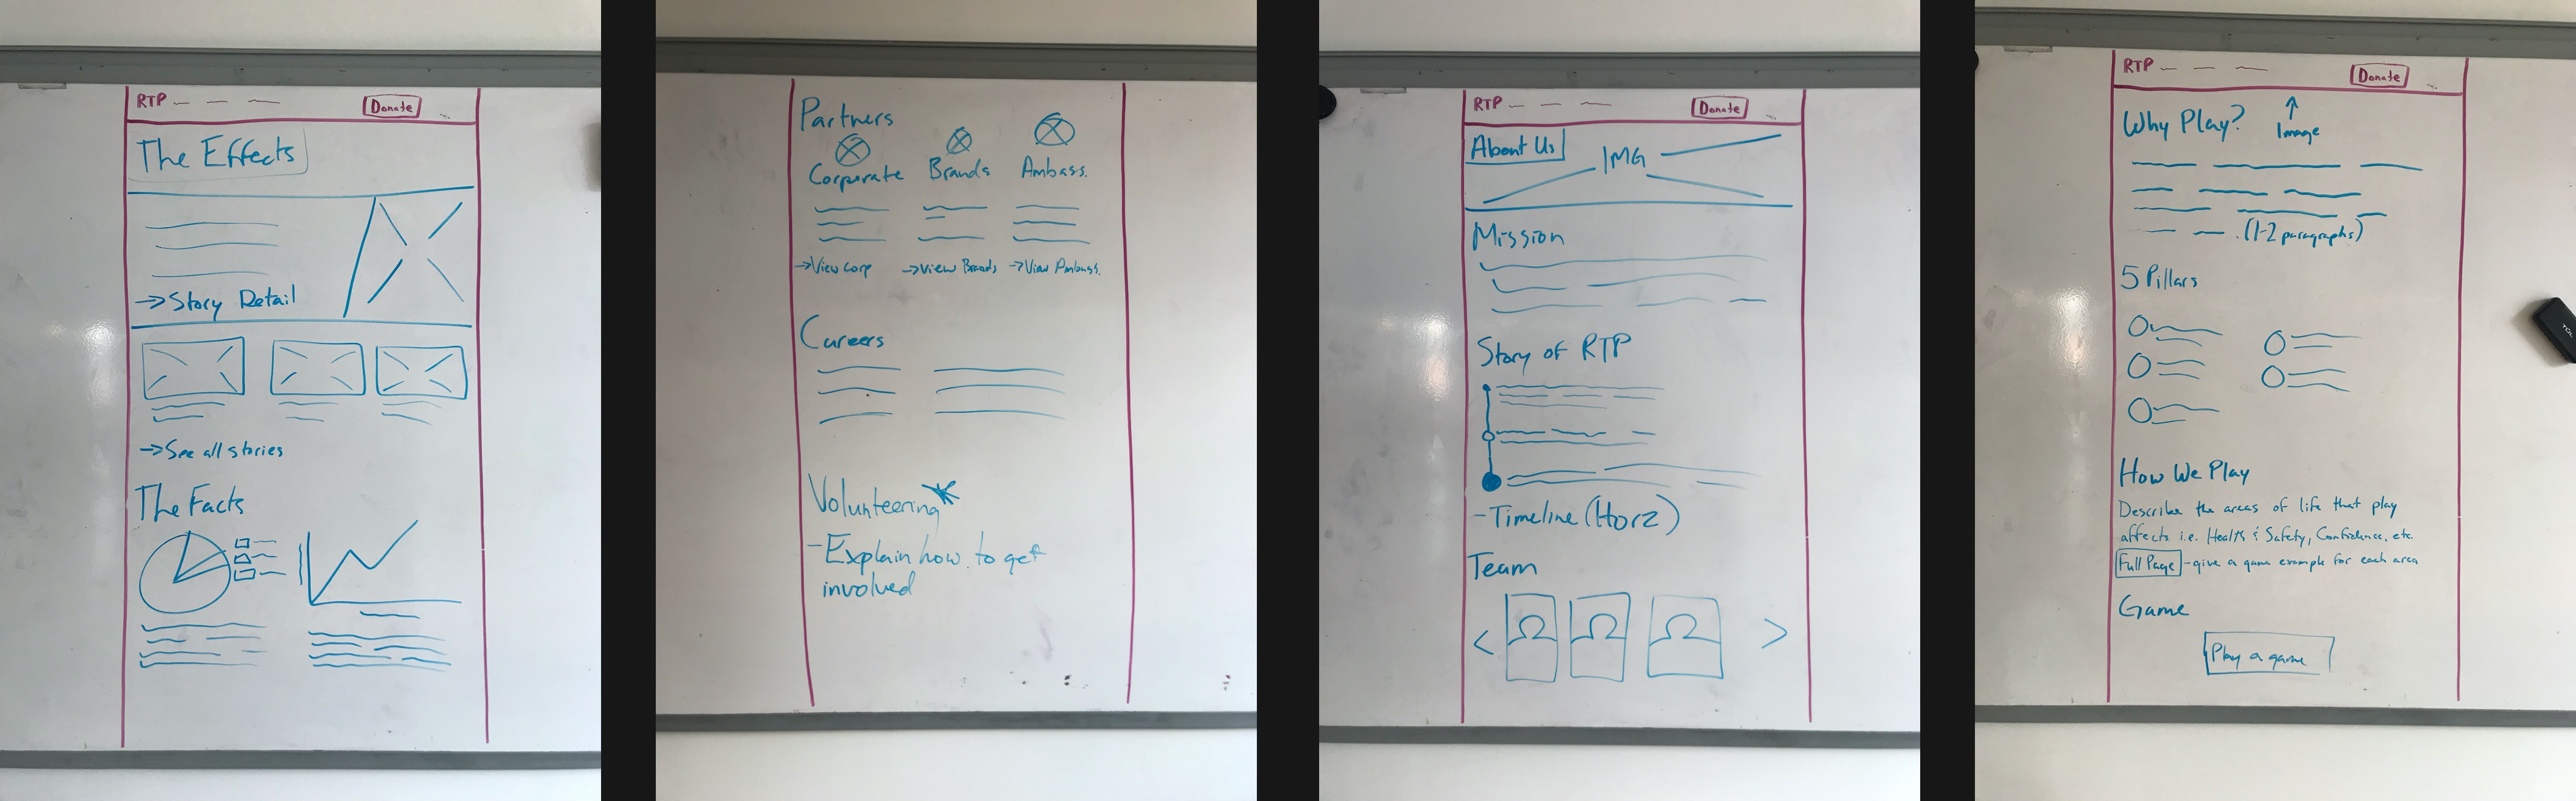 RTP
Donate
The Effects
→Story Detail
→See all stories
The Facts
Partners
Corporate
Brands
Ambass.
→View Corp
→View Brands
→View Ambass.
Careers
Volunteering*
-Explain how to get
involved
RTP
Donate
About Us
IMG
Mission
Story of RTP
-Timeline (Horz)
Team
< >
RTP
Donate
Why Play?
↑
Image
(1-2 paragraphs)
5 Pillars
How We Play
Describe the areas of life that play
affects i.e. Health & Safety, Confidence, etc.
Full Page - give a game example for each area
Game
Play a game